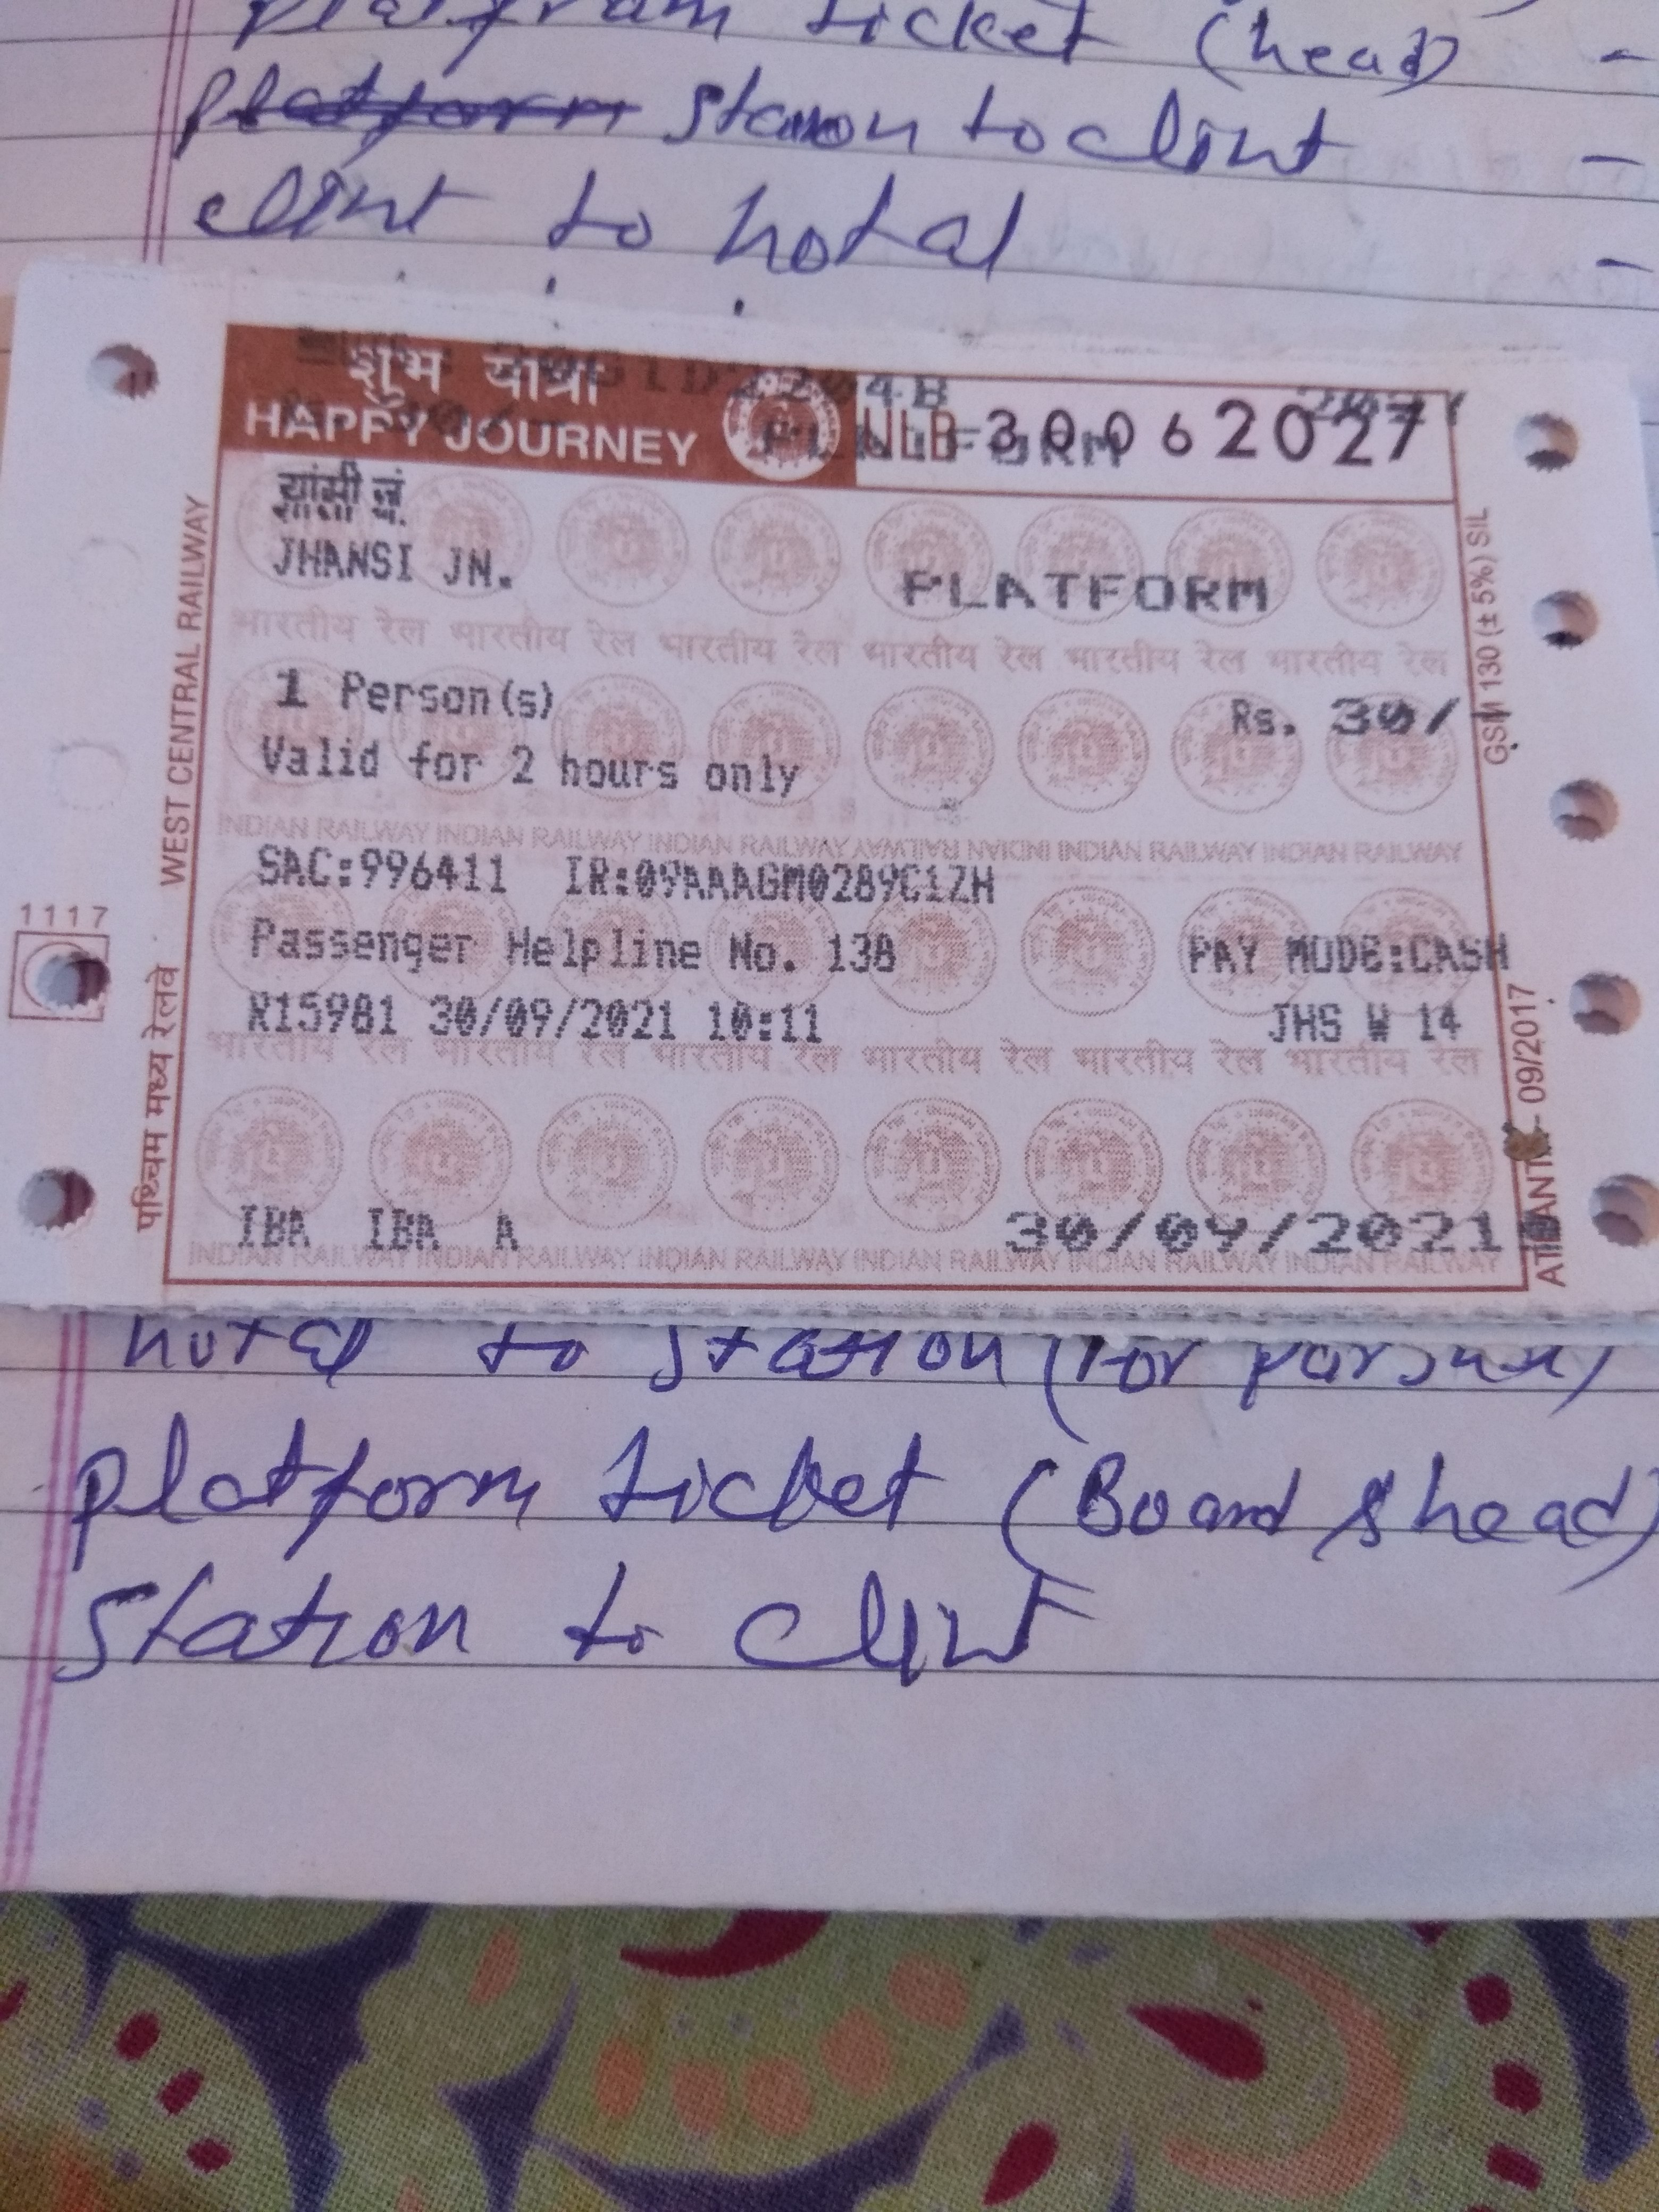 platfram ticket (head) -
platform station to clint -
clint to hotal -
शुभ यात्रा
HAPPY JOURNEY
30062027
झांसी जं.
JHANSI JN.
PLATFORM
भारतीय रेल भारतीय रेल भारतीय रेल भारतीय रेल भारतीय रेल भारतीय रेल
1 Person(s)
Rs. 30/-
Valid for 2 hours only
INDIAN RAILWAY INDIAN RAILWAY INDIAN RAILWAY INDIAN RAILWAY INDIAN RAILWAY INDIAN RAILWAY
SAC:996411 IR:09AAAGM0289C1ZH
Passenger Helpline No. 138 PAY MODE:CASH
R15981 30/09/2021 10:11 JHS W 14
भारतीय रेल भारतीय रेल भारतीय रेल भारतीय रेल भारतीय रेल भारतीय रेल
IBA IBA A
30/09/2021
INDIAN RAILWAY INDIAN RAILWAY INDIAN RAILWAY INDIAN RAILWAY INDIAN RAILWAY INDIAN RAILWAY
पश्चिम मध्य रेलवे WEST CENTRAL RAILWAY
1117
GSM 130 (± 5%) SIL
09/2017
hotel to station (for
platform ticket (Board & head)
station to clint